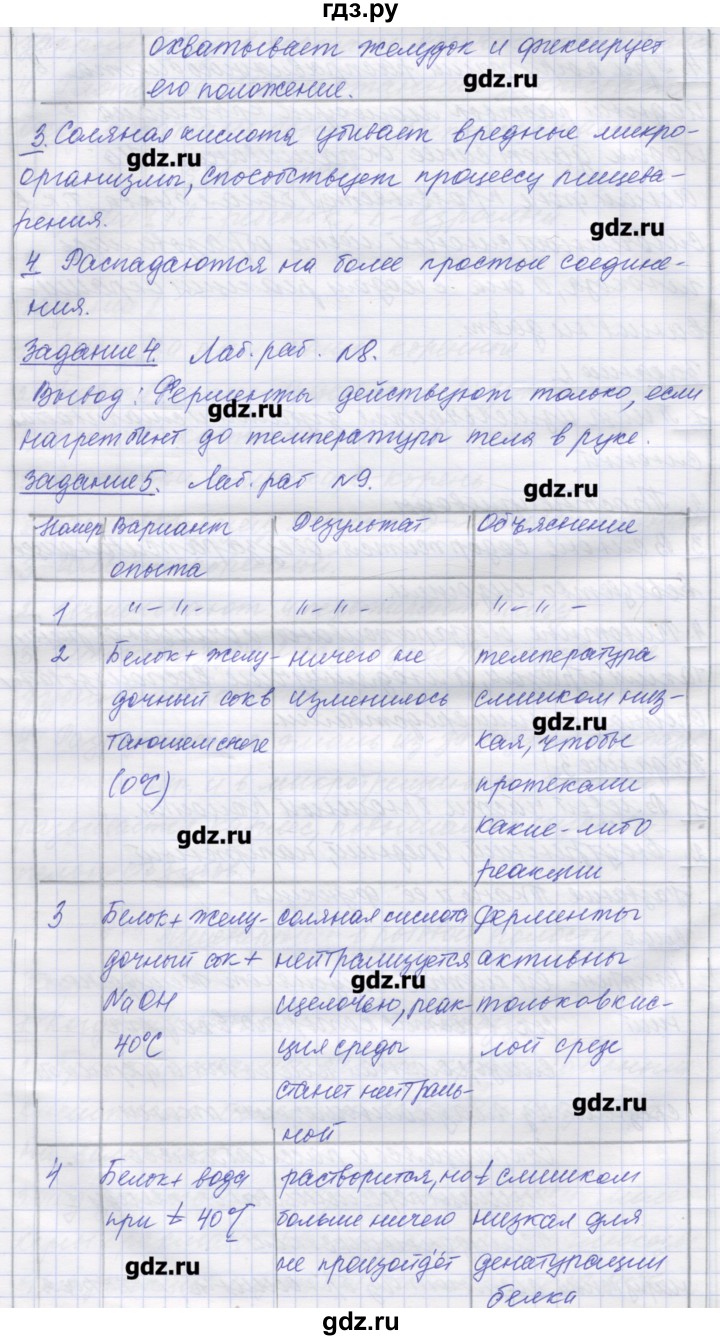 гдз.ру
охватывает желудок и фиксирует
gdz.ru
его положение.
3. Соляная кислота убивает вредные микро-
gdz.ru
организмы, способствует процессу пищева-
рения.
gdz.ru
4 Распадаются на более простые соедине-
ния.
Задание 4. Лаб. раб. №8.
Вывод: Ферменты действуют только, если
gdz.ru
нагреть бинт до температуры тела в руке.
Задание 5. Лаб. раб №9.
gdz.ru
Номер Вариант опыта Результат Объяснение
1 "–"– "–"– "–"–
2 Белок + желу- ничего не температура
дочный сок в изменилось слишком низ-
gdz.ru
тающем снеге кая, чтобы
(0°C) протекали
gdz.ru
какие-либо
реакции
3 Белок + желу- соляная кислота Ферменты
дочный сок + нейтрализуется активны
gdz.ru
NaOH щелочью, реак- только в кис-
40°C ция среды лой среде
станет нейтраль-
gdz.ru
ной
4 Белок + вода растворится, но t слишком
при t 40°C больше ничего низкая для
gdz.ru
не произойдёт денатурации
белка
gdz.ru